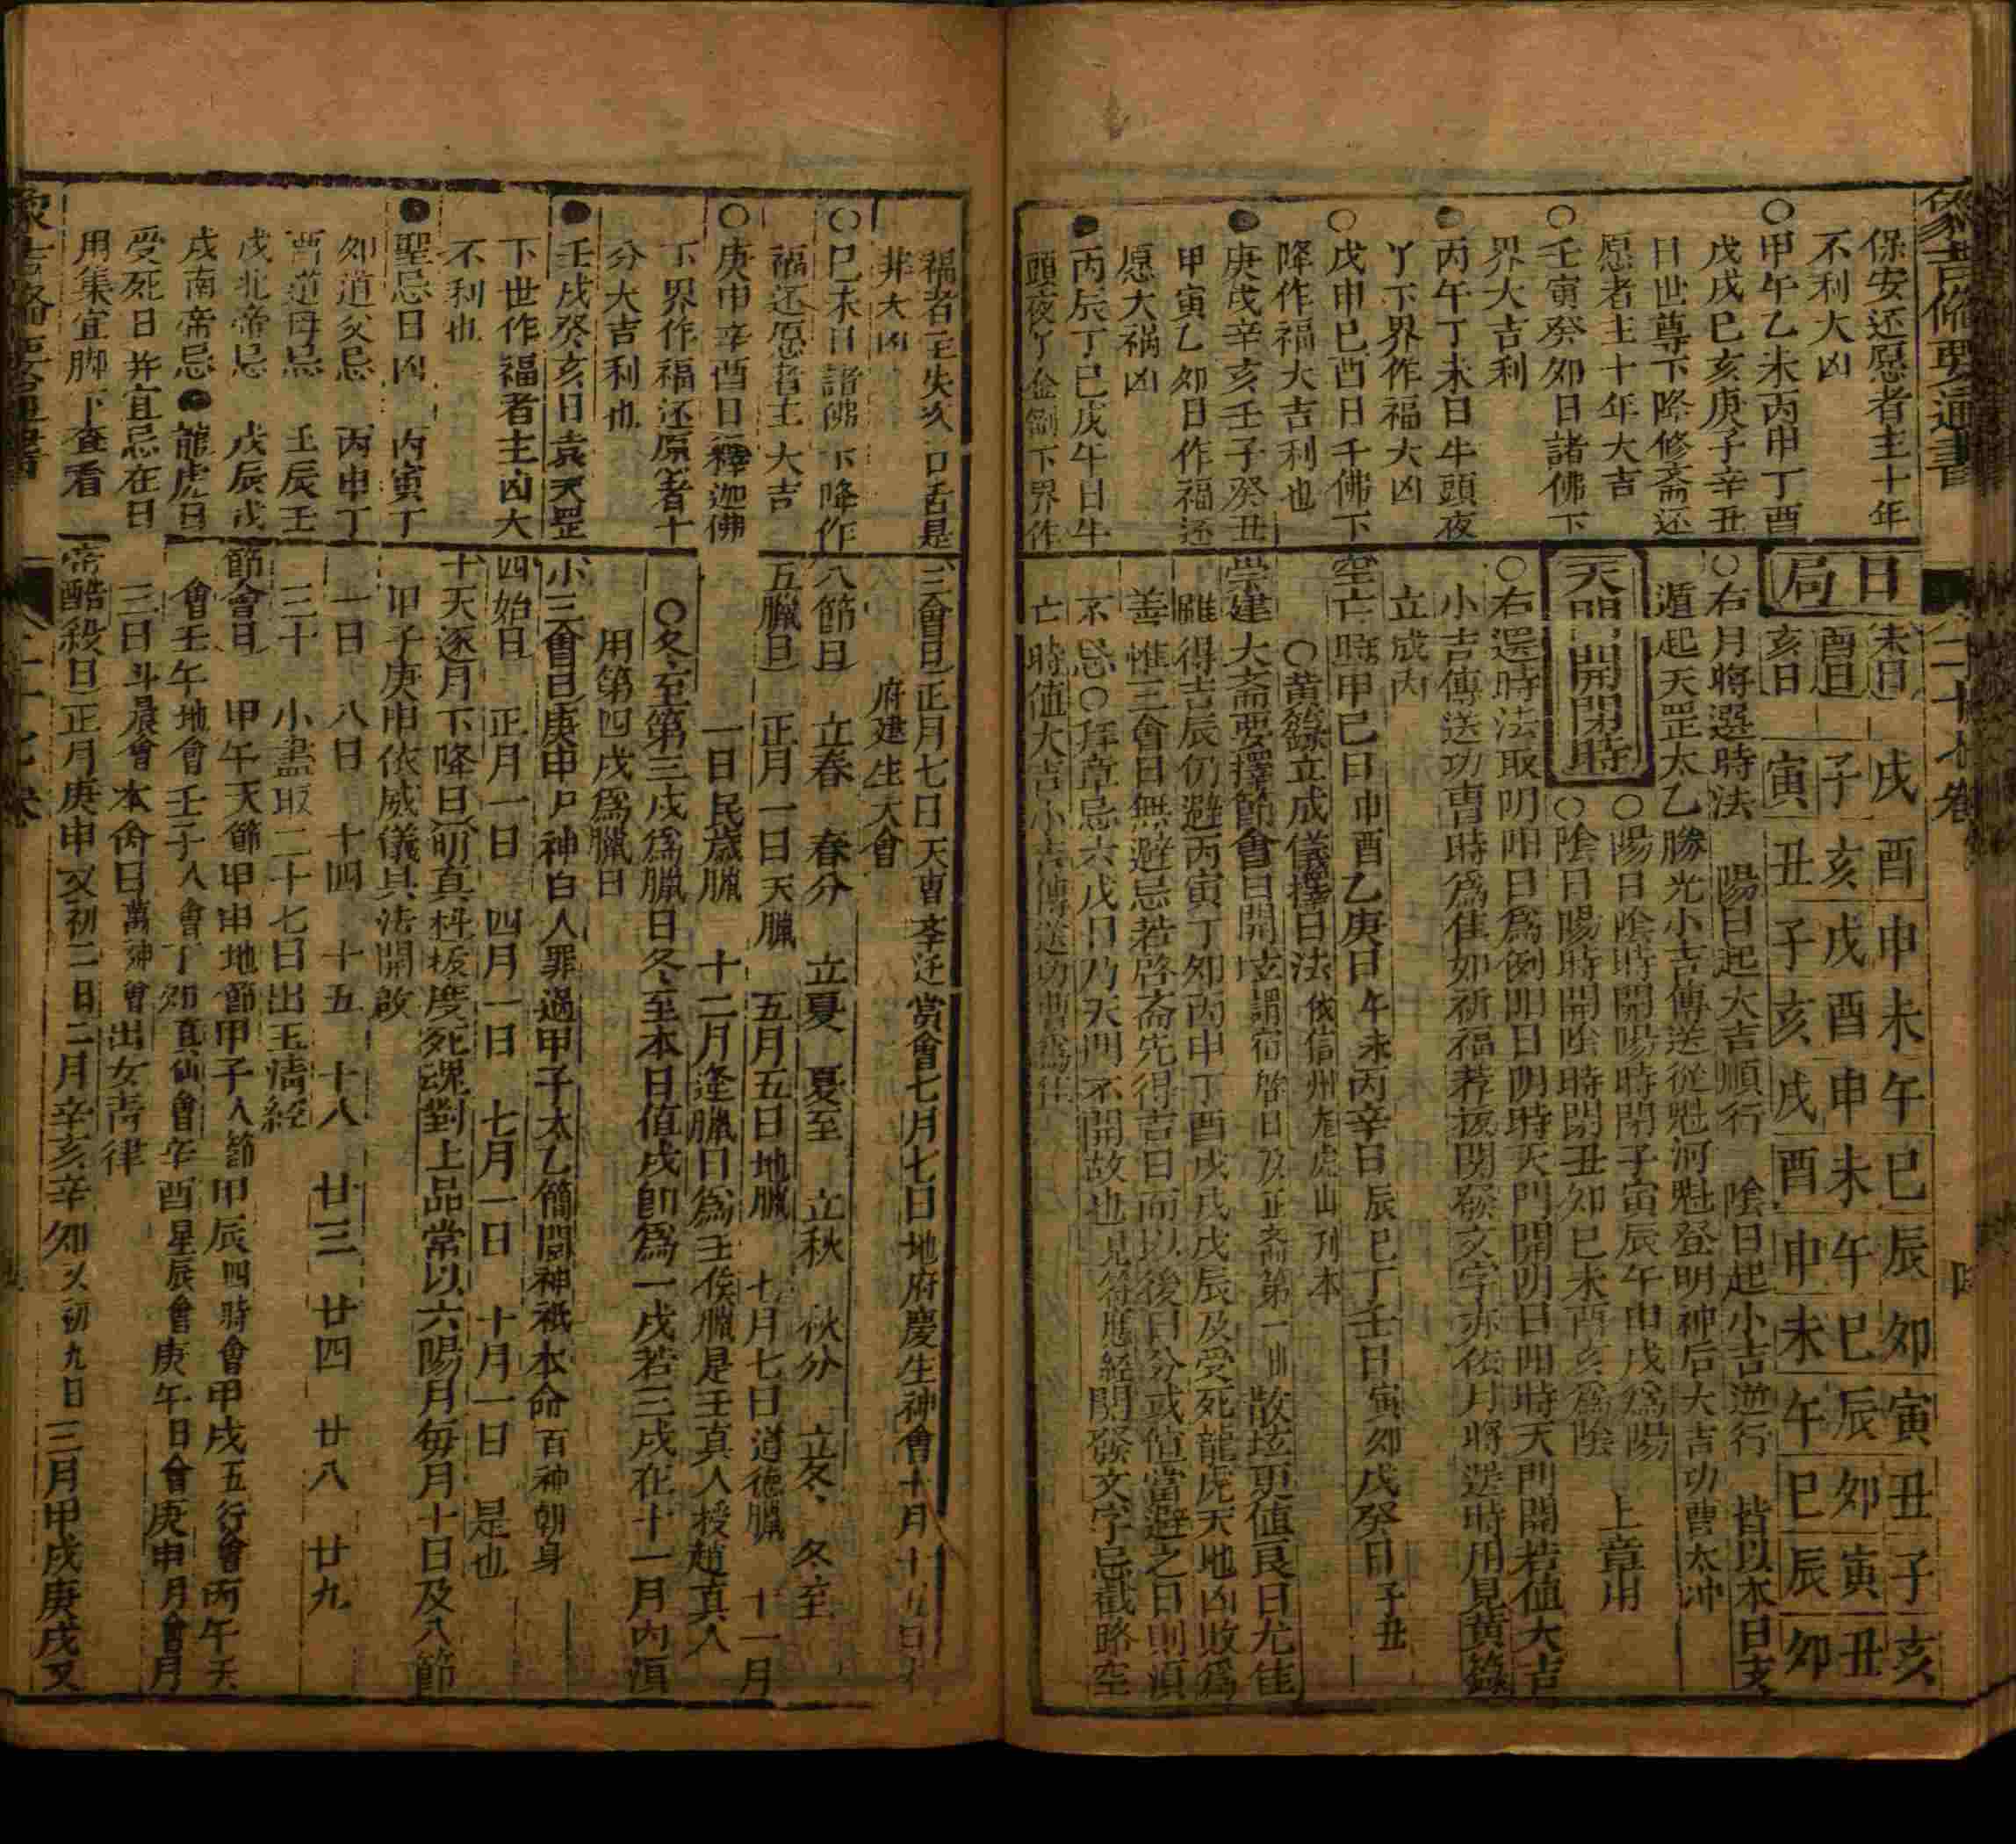 象吉備要通書
二十七卷
保安还愿者主十年
不利大凶
○甲午乙未丙申丁酉
戊戌巳亥庚子辛丑
日世尊下降修斋还
愿者主十年大吉
○壬寅癸夘日諸佛下
界大吉利
●丙午丁未日牛頭夜
丫下界作福大凶
○戊申巳酉日千佛下
降作福大吉利也
●庚戌辛亥壬子癸丑
甲寅乙夘日作福还
愿大禍凶
●丙辰丁巳戊午日牛
頭夜丫金剛下界作
日局
未日 戌酉申未午巳辰夘寅丑子亥
酉日 子亥戌酉申未午巳辰夘寅丑
亥日 寅丑子亥戌酉申未午巳辰夘
○右月將選時法 陽日起大吉順行 陰日起小吉逆行 皆以本日支
遁起天罡太乙勝光小吉傳送從魁河魁登明神后大吉功曹太冲
天門開閉時
○陽日陰時開陽時閉子寅辰午申戌為陽
○陰日陽時開陰時閉丑夘巳未酉亥為陰 上章用
○右選時法取阴阳日為例阳日阴時天門開阴日阳時天門開若值大吉
小吉傳送功曹時爲佳如祈福荐拔関發文字亦依月將選時用見黄籙
立成内
空亡時甲己日申酉乙庚日午未丙辛日辰巳丁壬日寅夘戊癸日子丑
○黄籙立成儀擇日法
崇建大斋要擇節會日開壇謂宿啓日及正斋第一日散壇更值良日尤佳
雖得吉辰仍避丙寅丁夘丙申丁酉戊戌戊辰及受死龍虎天地凶敗爲
善惟三會日無避忌若啓斋先得吉日而以後日分或值當避之日則湏
不忌○拜章忌六戊日乃天門不開故也見符應経関發文字忌截路空
亡時值大吉小吉傳送功曹為佳
福者主失火口舌是
非大凶
○巳未日諸佛下降作
福还愿者主大吉
○庚申辛酉日釋迦佛
下界作福还原者十
分大吉利也
●壬戌癸亥日袁天罡
下世作福者主凶大
不利也
●聖忌日凶 丙寅丁
夘道父忌 丙申丁
酉道母忌 壬辰壬
戌北帝忌 戊辰戊
戌南帝忌●龍虎日
受死日并宜忌在日
用集宜脚下查看
三會日正月七日天曹迁賞會七月七日地府慶生神會十月十五日
府建生大會
八節日 立春 春分 立夏 夏至 立秋 秋分 立冬 冬至
五臘日 正月一日天臘 五月五日地臘 七月七日道德臘 十一月
一日民歲臘 十二月逢臘日為王侯臘是王真人授趙真人
○冬至第三戌爲臘日冬至本日值戌即爲一戌若三戌在十一月内湏
用第四戌爲臘日
小三會日庚申尸神白人罪過甲子太乙簡閱神祇本命百神朝身
四始日 正月一日 四月一日 七月一日 十月一日 是也
十天逐月下降日明真科拔度死魂對上品常以六陽月每月十日及八節
甲子庚申依威儀具法開啟
一日 八日 十四 十五 十八 廿三 廿四 廿八 廿九
三十 小盡取二十七日出玉清經
節會日 甲午天節甲申地節甲子人節甲辰四時會甲戌五行會丙午天
會壬午地會壬子人會丁夘真仙會辛酉星辰會庚午日會庚申月會月
三日斗晨會本命日萬神會出女青律
帝酷殺日正月庚申又初二日二月辛亥辛夘又初九日三月甲戌庚戌又